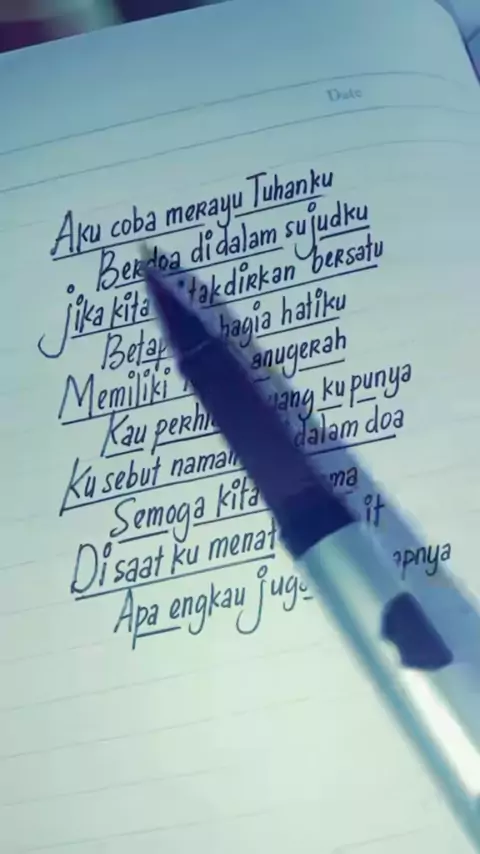 Date
Aku coba merayu Tuhanku
Berdoa didalam sujudku
jika kita takdirkan bersatu
hagia hatiku
Memiliki anugerah
Kau ku punya
Ku sebut dalam doa
Semoga kita
Di saat ku
Apa engkau